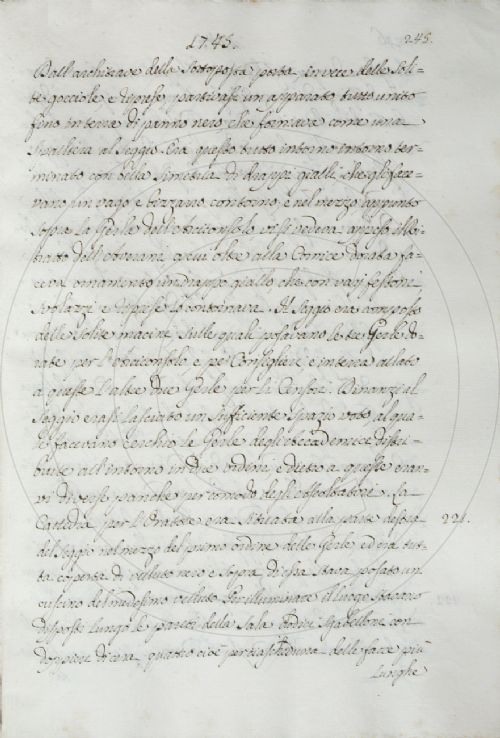 1745.
245.
Dall'architrave della sottoposta porta, in vece delle soli-
te gocciole e riprese, partivasi un apparato tutto unito
fino in terra di panno nero che formava come una
spalliera al seggio. Era questo tutto intorno intorno ter-
minato con bella simetria di drappi gialli che gli face-
vano un vago e bizzarro contorno, e nel mezzo appunto
sopra la Gerla dell'Arciconsolo vi si vedeva appeso il Ri-
tratto dell'Averani a cui oltre alla Cornice dorata fa-
ceva ornamento un drappo giallo che con varj festoni
svolazzi e riprese lo contornava. Il seggio era composto
delle solite macine sulle quali posavano le tre Gerle do-
rate per l'Arciconsolo, e pe' Consiglieri, e in terra allato
a queste l'altre due Gerle per li Censori. Dinanzi al
seggio erasi lasciato un sufficiente spazio voto al qua-
le facevano cerchio le Gerle degli Accademici distri-
buite all'intorno in due ordini, e dietro a queste eran-
vi diverse panche per comodo degli Ascoltatori. La
Cattedra per l'Oratore era situata alla parte destra
224.
del seggio nel mezzo del primo ordine delle Gerle ed era tut-
ta coperta di velluto nero e sopra di essa stava posato un
cuscino del medesimo velluto. Per illuminare il luogo stavano
disposti lungo le pareti della Sala dodici sgabelloni con
doppieri di cera, quattro cioè per ciascheduna delle facce più
lunghe